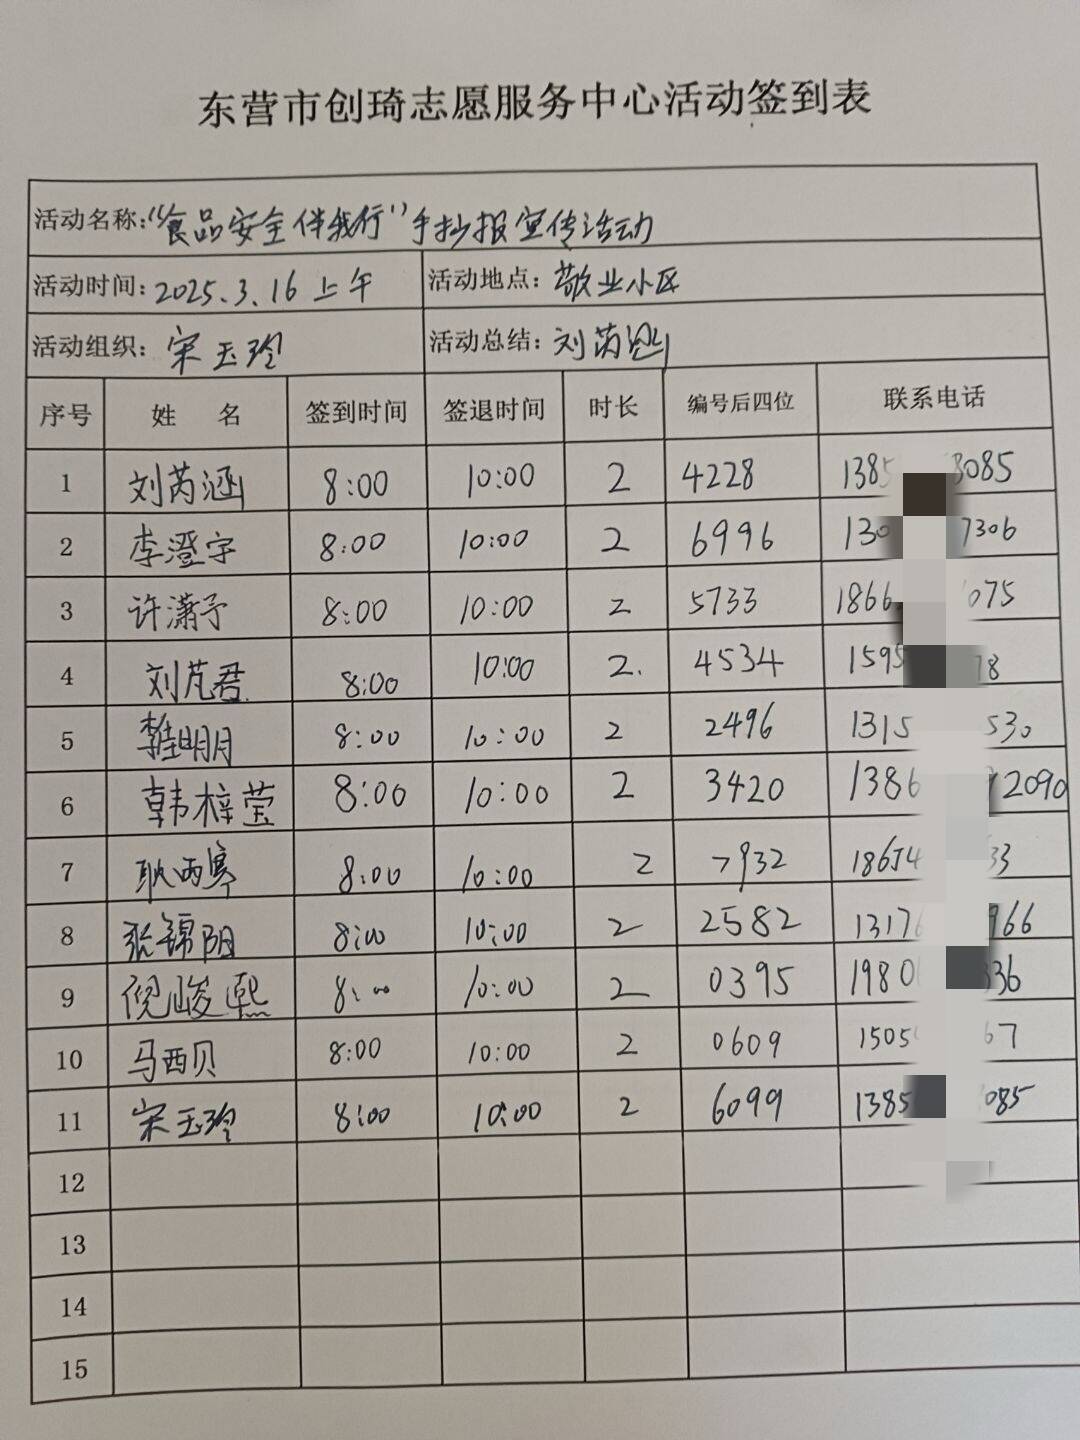 东营市创琦志愿服务中心活动签到表
活动名称:“食品安全伴我行”手抄报宣传活动
活动时间: 2025.3.16 上午 活动地点: 敬业小区
活动组织: 宋玉玲 活动总结: 刘芮涵
序号 姓 名 签到时间 签退时间 时长 编号后四位 联系电话
1 刘芮涵 8:00 10:00 2 4228 1385 3085
2 李澄宇 8:00 10:00 2 6996 130 7306
3 许潇予 8:00 10:00 2 5733 1866 075
4 刘芃君 8:00 10:00 2. 4534 1595 78
5 明月 8:00 10:00 2 2496 1315 530
6 韩梓莹 8:00 10:00 2 3420 1386 2090
7 耿雨寒 8:00 10:00 2 7932 18654 33
8 张锦阳 8:00 10:00 2 2582 1317 966
9 倪峻熙 8:00 10:00 2 0395 1980 336
10 马西贝 8:00 10:00 2 0609 1505 67
11 宋玉玲 8:00 10:00 2 6099 1385 085
12
13
14
15